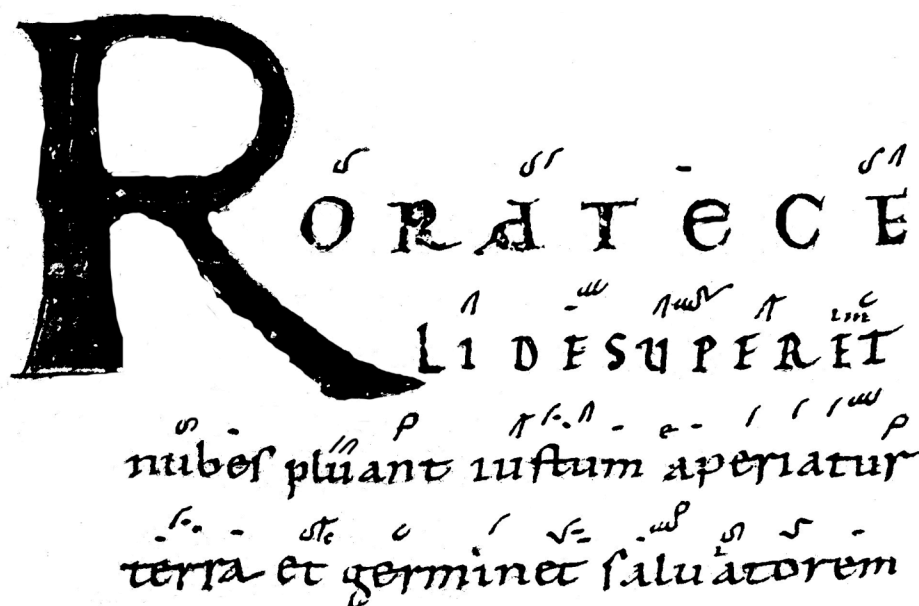 RORATE CE
LI DESUPER ET
nubes pluant iustum aperiatur
terra et germinet saluatorem